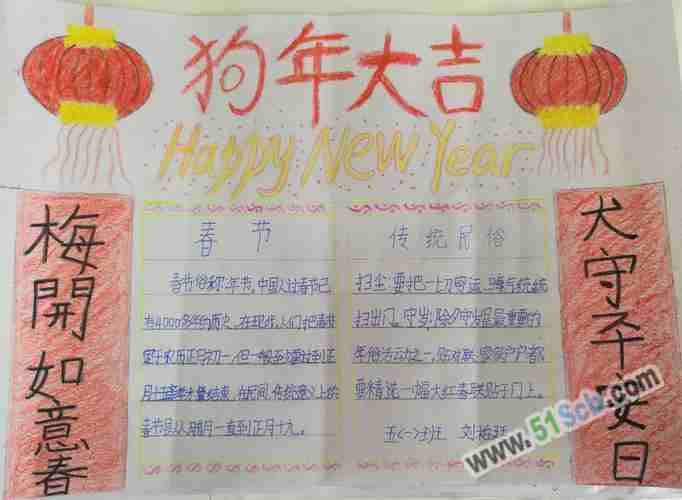 狗年大吉
Happy New Year
梅開如意春
春节
春节俗称"年节,中国人过春节已
有4000多年的历史,在现代,人们把春节
定于农历正月初一,但一般至少要过到正
月十五
结束,在民间,传统意义上的
春节是从腊月一直到正月十九。
传统民俗
扫尘:要把一切 运、晦气统统
扫出门。守岁:除夕守岁是最重要的
年俗活动之一,贴对联:家家户户都
要精选一幅大红春联贴于门上。
五<一>班 刘
犬守平安日
www.51Scb.com